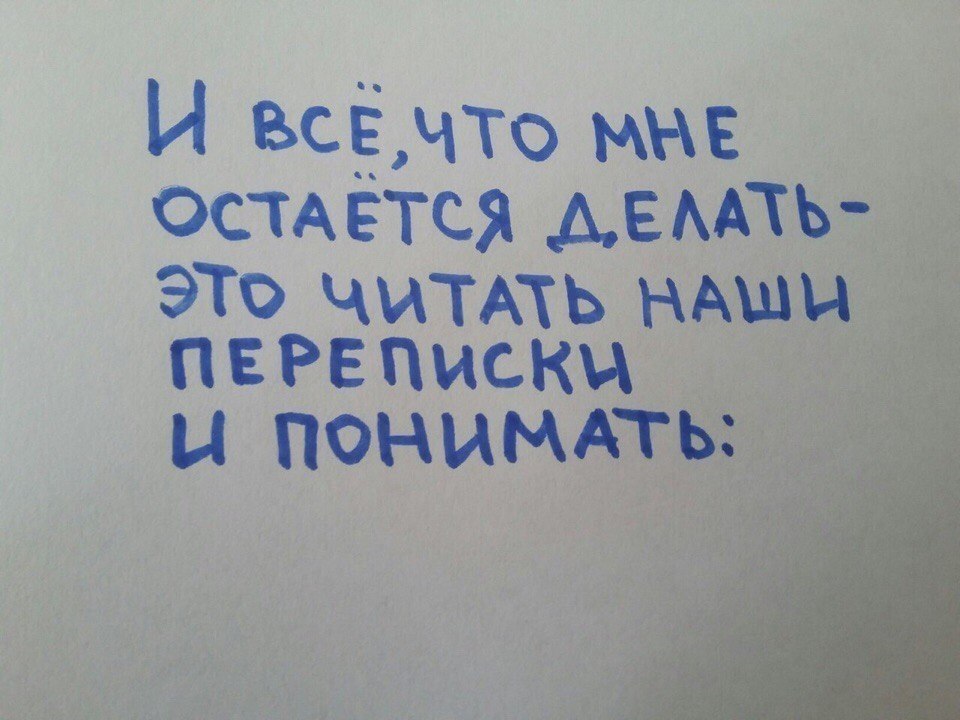 И ВСЁ, ЧТО МНЕ
ОСТАЁТСЯ ДЕЛАТЬ-
ЭТО ЧИТАТЬ НАШИ
ПЕРЕПИСКИ
И ПОНИМАТЬ: